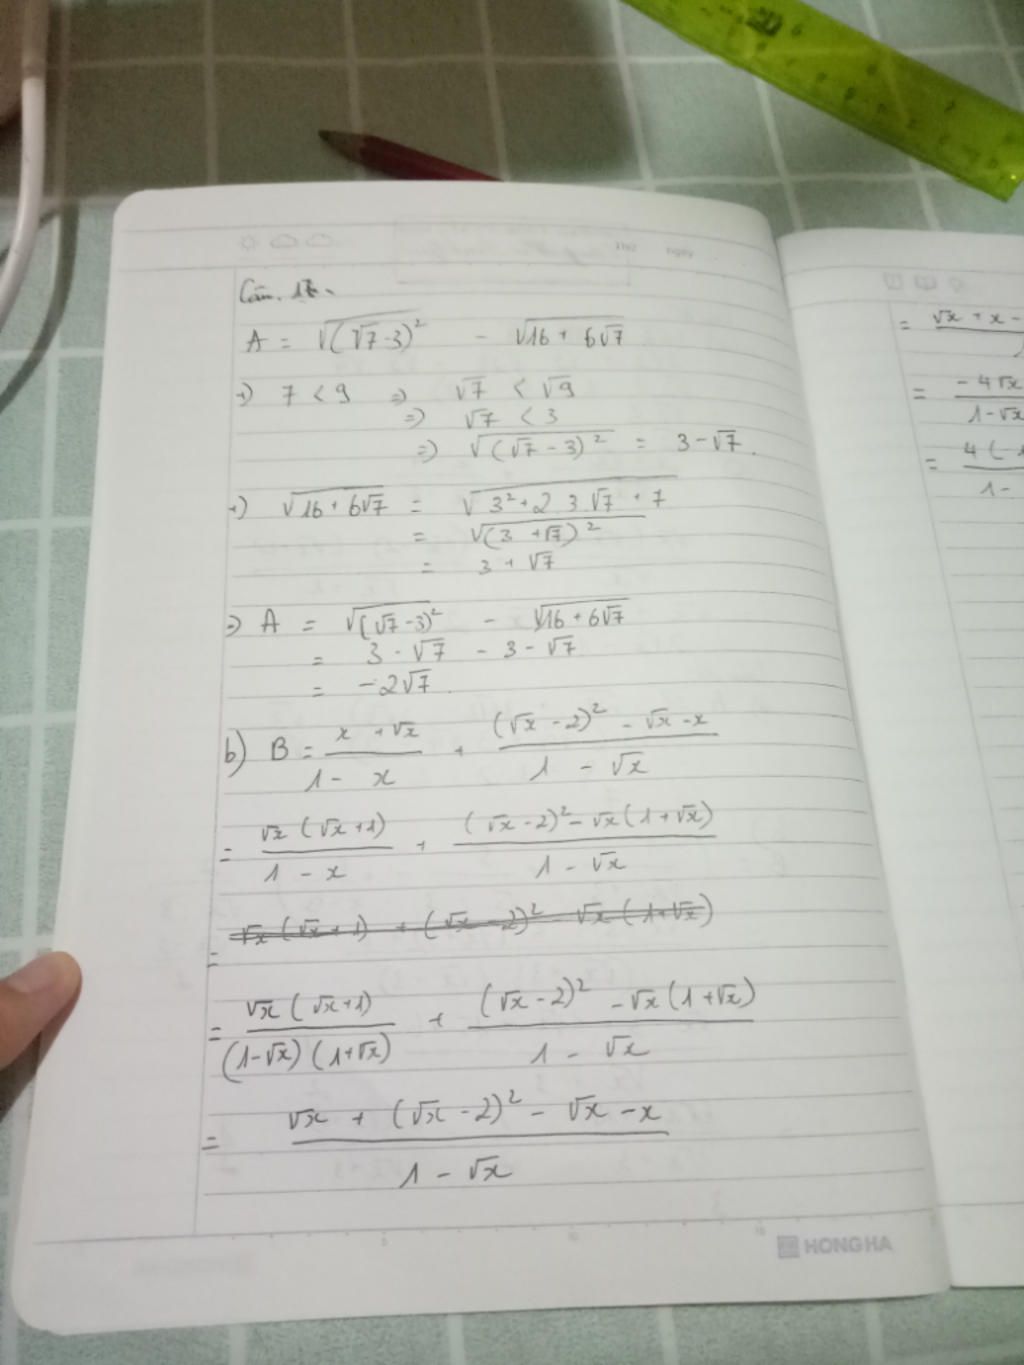 Câu. 17.
A = √(√7-3)² - √16 + 6√7
+) 7 < 9 => √7 < √9
=> √7 < 3
=> √(√7 - 3)² = 3 - √7.
+) √16 + 6√7 = √3² + 2 3 √7 + 7
= √(3 + √7)²
= 3 + √7
=> A = √(√7 - 3)² - √16 + 6√7
= 3 - √7 - 3 - √7
= -2√7.
b) B = x + √x / 1 - x + (√x - 2)² - √x - x / 1 - √x
= √x (√x + 1) / 1 - x + (√x - 2)² - √x (1 + √x) / 1 - √x
= √x (√x + 1) + (√x - 2)² - √x (1 + √x)
= √x (√x + 1) / (1 - √x) (1 + √x) + (√x - 2)² - √x (1 + √x) / 1 - √x
= √x + (√x - 2)² - √x - x / 1 - √x
HONG HA
= √x + x -
= -4√x / 1 - √x
= 4 (- / 1 -